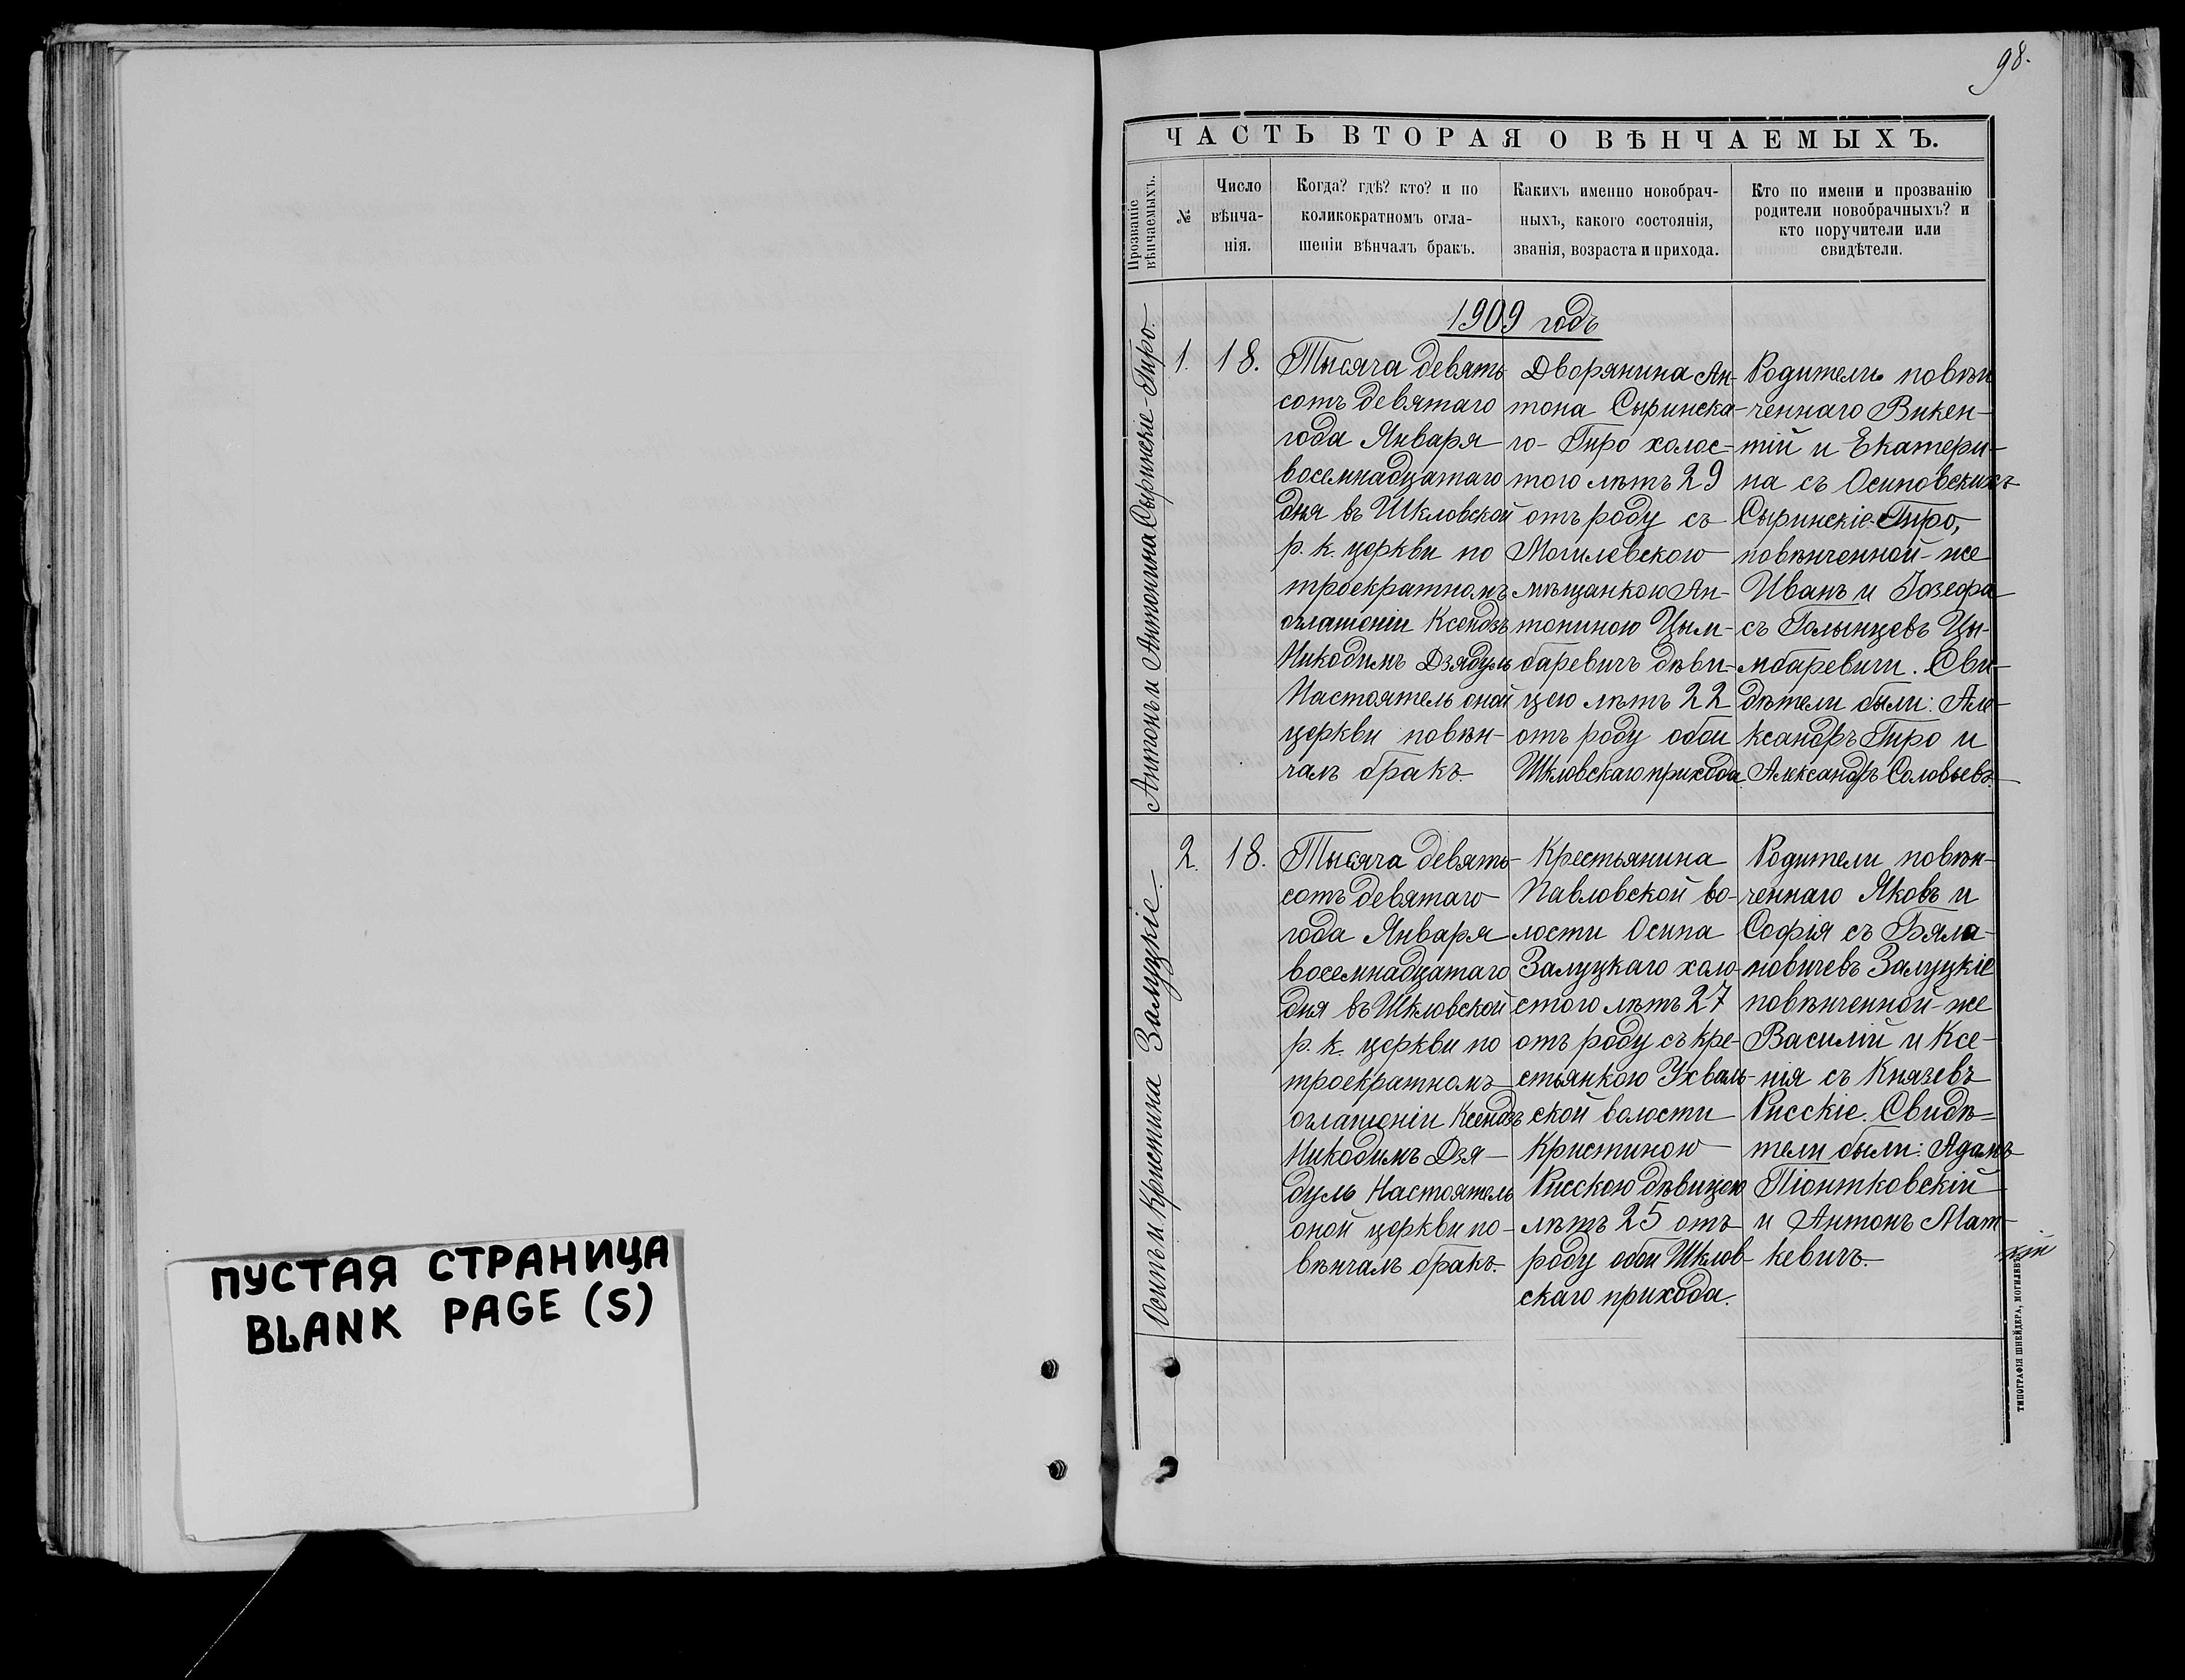 98.
ЧАСТЬ ВТОРАЯ О ВѢНЧАЕМЫХЪ.
Прозваніе
вѣнчаемыхъ.
№
Число
вѣнча-
нія.
Когда? гдѣ? кто? и по
коликократномъ огла-
шеніи вѣнчалъ бракъ.
Какихъ именно новобрач-
ныхъ, какого состоянія,
званія, возраста и прихода.
Кто по имени и прозванію
родители новобрачныхъ? и
кто поручители или
свидѣтели.
1909 годъ
Антонъ и Антонина Сыринскіе-Гиро.
1.
18.
Тысяча девять
сотъ девятаго
года Января
восемнадцатаго
дня въ Шкловской
р. к. церкви по
троекратномъ
оглашеніи Ксендзъ
Никодимъ Дзядуль
Настоятель оной
церкви повѣн-
чалъ бракъ.
Дворянина Ан-
тона Сыринска-
го-Гиро холос-
того лѣтъ 29
отъ роду съ
Могилевскою
мѣщанкою Ан-
тониною Цым-
баревичъ дѣви-
цею лѣтъ 22
отъ роду обои
Шкловскаго прихода.
Родители повѣн
ченнаго Викен-
тій и Екатери-
на съ Осиповскихъ
Сыринскіе-Гиро,
повѣнченной-же
Иванъ и Іозефа
съ Голынцевъ Цы-
мбаревичи. Сви-
дѣтели были: Але-
ксандръ Гиро и
Александръ Соловьевъ.
Осипъ и Кристина Залуцкіе.
2.
18.
Тысяча девять-
сотъ девятаго
года Января
восемнадцатаго
дня въ Шкловской
р. к. церкви по
троекратномъ
оглашеніи Ксендзъ
Никодимъ Дзя-
дуль Настоятель
оной церкви по-
вѣнчалъ бракъ.
Крестьянина
Павловской во-
лости Осипа
Залуцкаго холо-
стого лѣтъ 27
отъ роду съ кре-
стьянкою Ухваль-
ской волости
Кристиною
Рисскою дѣвицею
лѣтъ 25 отъ
роду обои Шклов-
скаго прихода.
Родители повѣн-
ченнаго Яковъ и
Софія съ Бяла-
новичевъ Залуцкіе
повѣнченной-же
Василій и Ксе-
нія съ Князевъ
Рисскіе. Свидѣ-
тели были: Адамъ
Піонтковскій
и Антонъ Мат-
кевичъ.
ТИПОГРАФІЯ ШНЕЙДЕРА, МОГИЛЕВЪ
ПУСТАЯ СТРАНИЦА
BLANK PAGE (S)